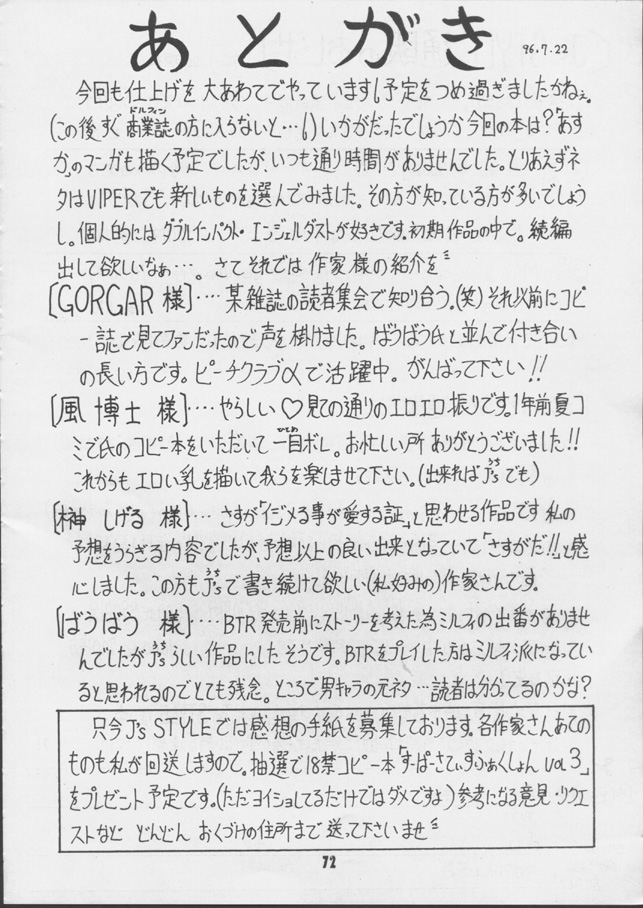 あとがき
96.7.22
今回も仕上げを大あわてでやっています!予定をつめ過ぎましたかねぇ。
(この後すぐ商業誌の方に入らないと…!)いかがだったでしょうか今回の本は?「あす
か」のマンガも描く予定でしたが、いつも通り時間がありませんでした。とりあえずネ
タはVIPERでも新しいものを選んでみました。その方が知っている方が多いでしょう
し。個人的にはダブルインパクト・エンジェルダストが好きです。初期作品の中で。続編
出して欲しいなぁ…。さてそれでは作家様の紹介を
[GORGAR様]‥‥某雑誌の読者集会で知り合う。(笑)それ以前にコピ
ー誌で見てファンだったので声を掛けました。ばうばう氏と並んで付き合い
の長い方です。ピーチクラブαで活躍中。がんばって下さい!!
[風博士様]‥‥やらしい♡見ての通りのエロエロ振りです。1年前夏コ
ミで氏のコピー本をいただいて一目ボレ。お忙しい所ありがとうございました!!
これからもエロい乳を描いて我らを楽しませて下さい。(出来ればJ'sでも)
[榊しげる様]‥‥さすが「イジメる事が愛する証」と思わせる作品です私の
予想をうらぎる内容でしたが、予想以上の良い出来となっていて「さすがだ!!」と感
心しました。この方もJ'sで書き続けて欲しい(私好みの)作家さんです。
[ばうばう様]‥‥BTR発売前にストーリーを考えた為ミルフィの出番がありませ
んでしたがJ'sらしい作品にしたそうです。BTRをプレイした方はミルフィ派になってい
ると思われるのでとても残念。ところで男キャラの元ネタ…読者は分かってるのかな?
只今J's STYLEでは感想の手紙を募集しております。各作家さんあての
ものも私が回送しますので。抽選で18禁コピー本「すーぱーさてぃすふぁくしょん vol 3」
をプレゼント予定です。(ただヨイショしてるだけではダメですよ)参考になる意見・リクエ
ストなど どんどん おくづけの住所まで送って下さいませ
72